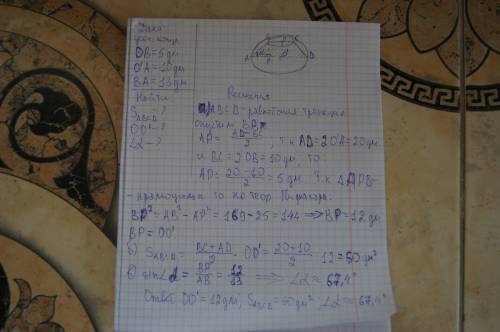 Дано:
усеч. конус
OB=5 дм
O'A=10 дм
BA=13 дм
Найти
S ABCD
OO' - ?
∠α - ?
Решение
а) ABCD - равнобокая трапеция
опустим BP
AP = (AD-BC)/2, т.к AD=2O'A=20 дм
и BC=2OB=10 дм, то:
AP = (20-10)/2 = 5 дм. т.к △APB-
- прямоуг то по теор. Пифагора.
BP² = AB² - AP² = 169-25=144 ⟹ BP=12 дм
BP=OO'
б) S ABCD = (BC+AD)/2 · OO' = (20+10)/2 · 12 = 60 дм²
в) sin∠α = BP/AB = 12/13 ⟹ ∠α ≈ 67,4°
Ответ OO'=12дм, S ABCD=60дм² ∠α≈67,4°